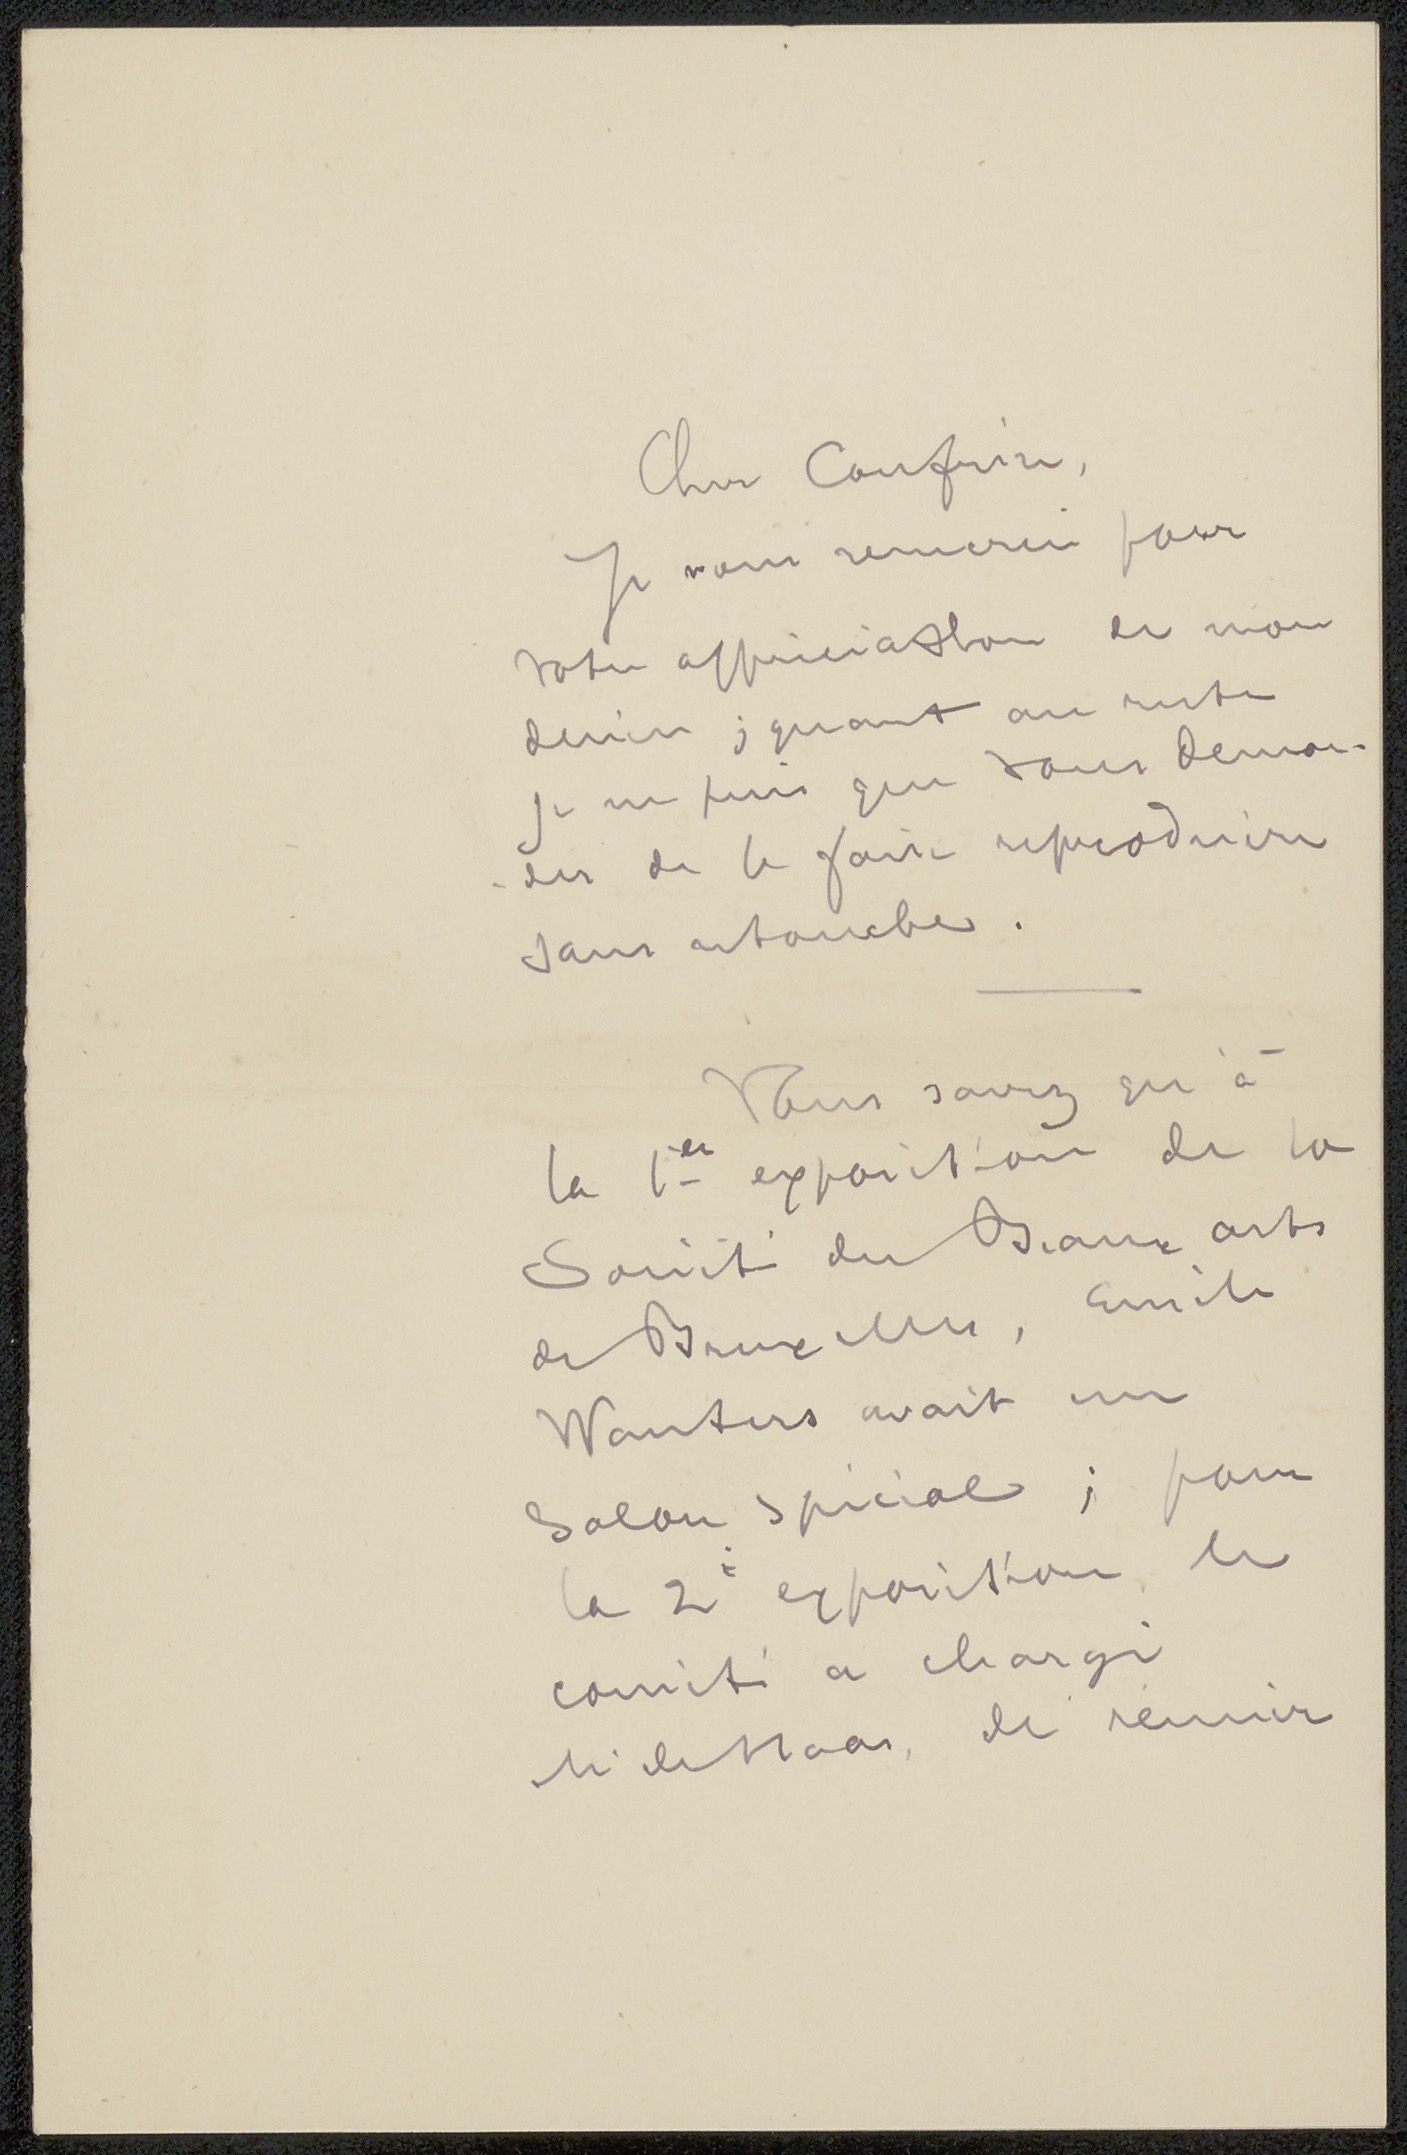 Cher Confrère,
Je vous remercie pour
votre appréciation de mon
dessin ; quant au reste
je ne puis que vous deman-
-der de le faire reproduire
sans retouche.
Vous savez qu'à
la 1er exposition de la
Société des Beaux arts
de Bruxelles, Emile
Wauters avait un
Salon spécial ; pour
la 2e exposition, le
comité a chargé
de Haas, de réunir